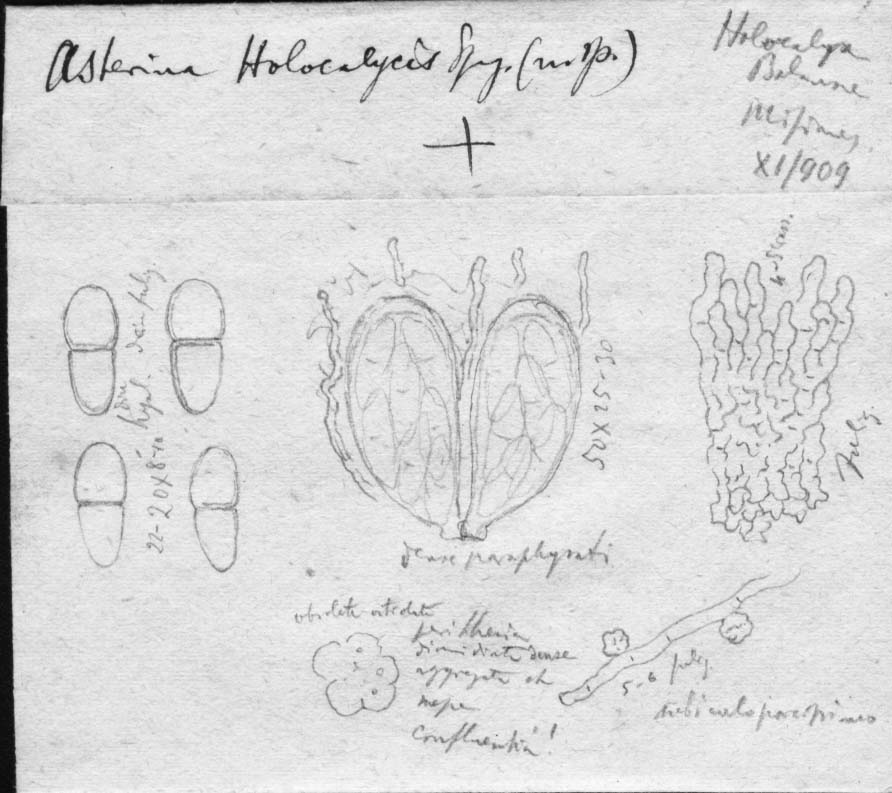 Asterina Holocalycis Speg. (n. sp.)
Holocalyx
Balansae
Misiones
XI/909
+
diu hyal. dein fulig.
22-20X8-10
50X25-30
dense paraphysati
4-5 crass.
fulig.
obsolete ostiolata
perithecia
dimidiata dense
aggregata et
saepe
confluentia!
5-6 fulig.